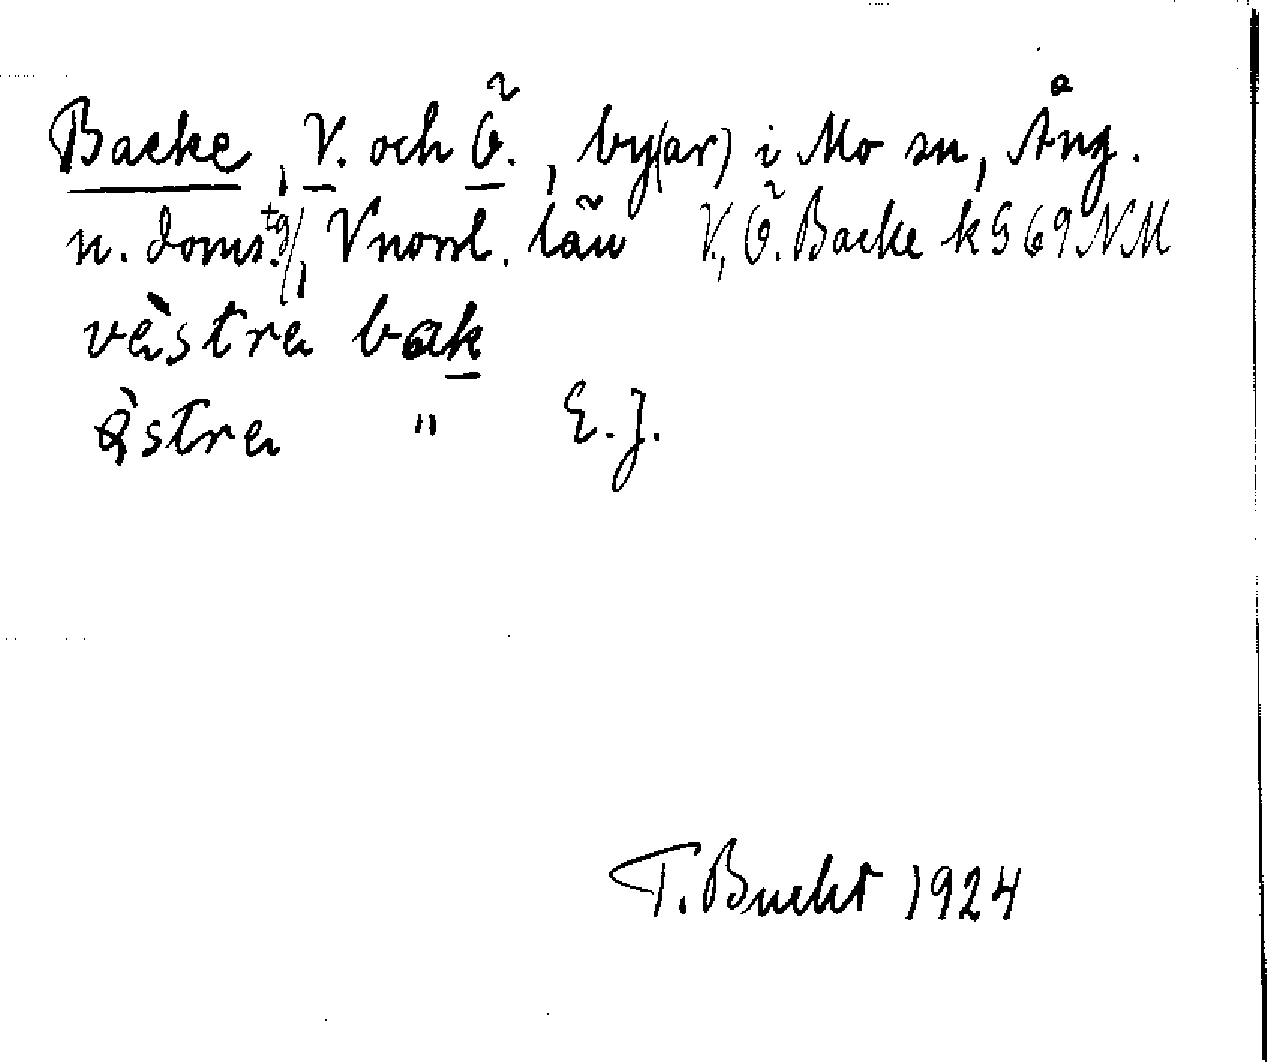 Backe, V. och Ö., by(ar) i Mo sn, Ång.
n. doms.tg/, Vnorrl. län V., Ö. Backe k S 69 NM
vèstra bak
östra " E.J.
T. Bucht 1924